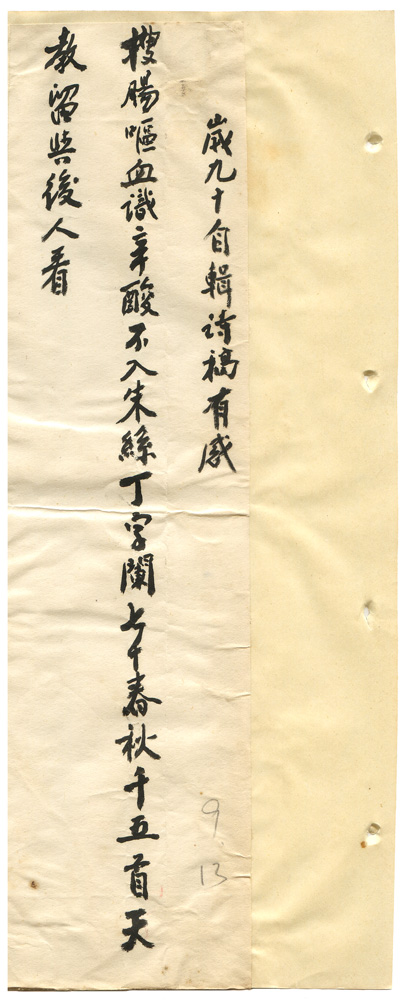 歲九十自輯詩稿有感
搜腸嘔血識辛酸不入朱絲丁字闌七十春秋千五首天
教留與後人看
9.13